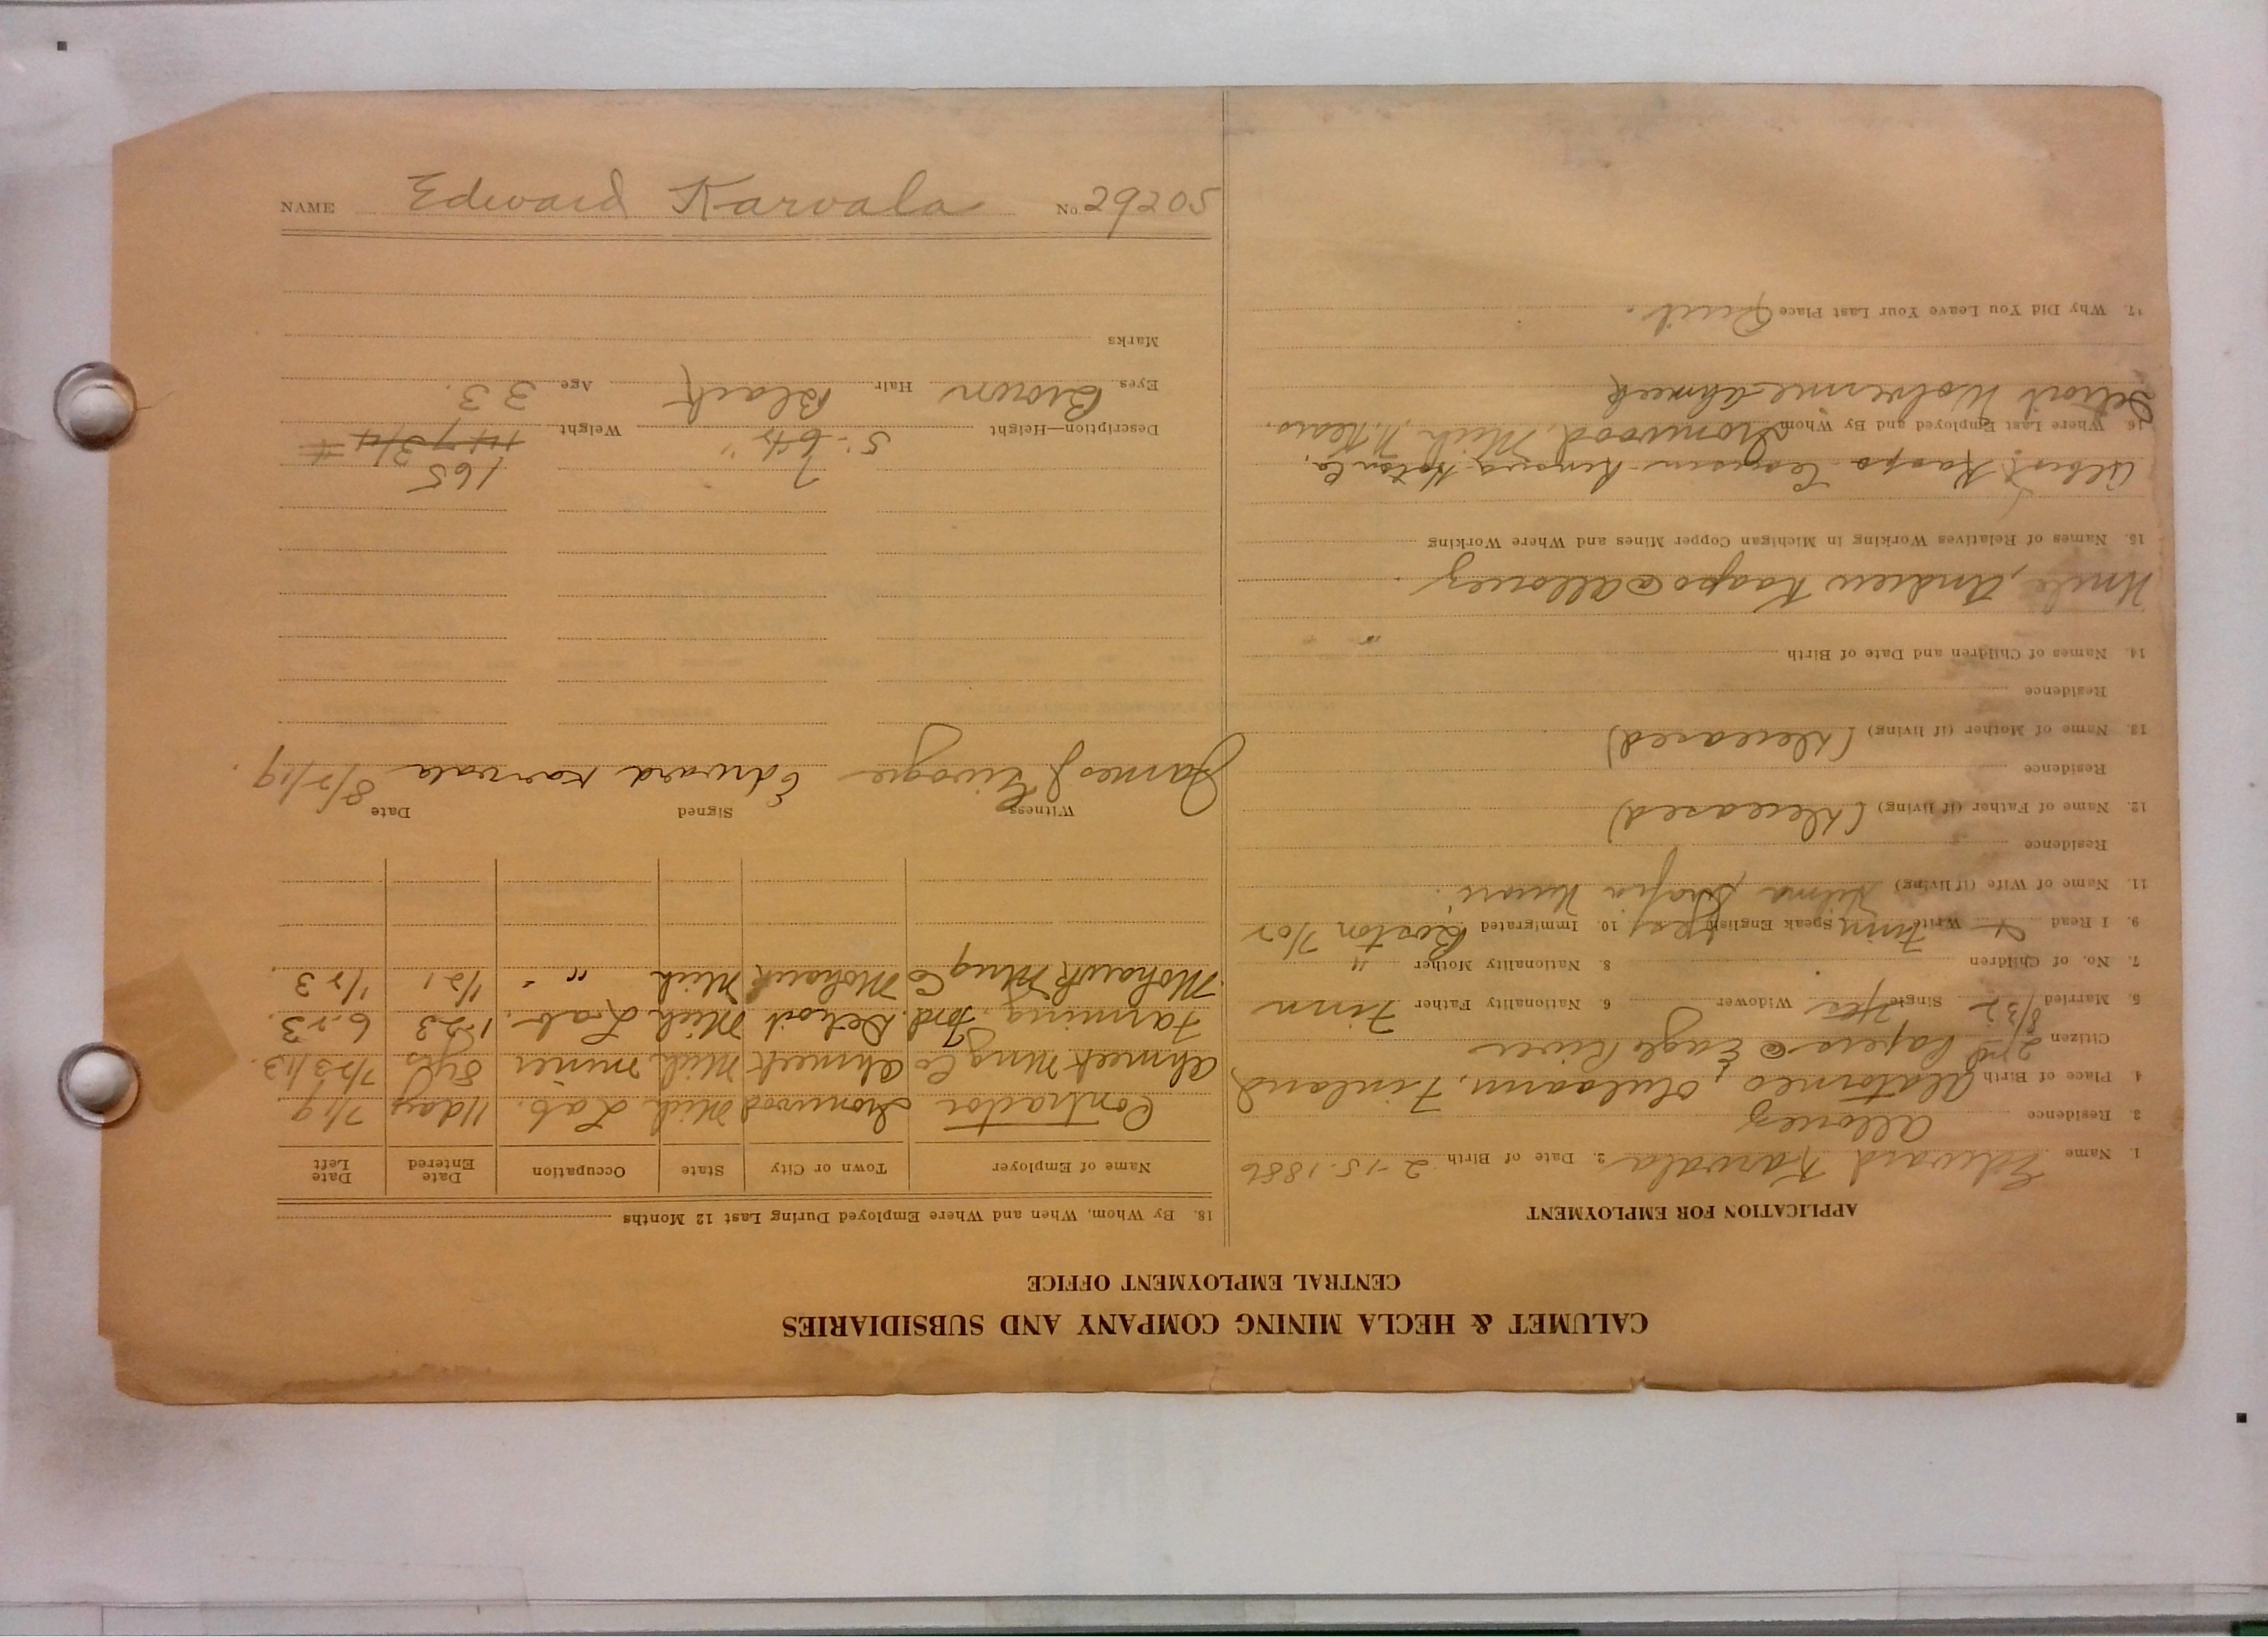 CALUMET & HECLA MINING COMPANY AND SUBSIDIARIES
CENTRAL EMPLOYMENT OFFICE
APPLICATION FOR EMPLOYMENT
1. Name Edward Karvala 2. Date of Birth 2-15-1886
3. Residence Allouez
4. Place of Birth Alatorneo, Oulaann, Finland
Citizen 2nd Papers @ Eagle River
5. Married 8/32 Single Yes Widower 6. Nationality Father Finn
7. No. of Children 8. Nationality Mother "
9. I Read Write Finn Speak English Yes 10. Immigrated Boston
11. Name of Wife (if living) Hilma Sofia
Residence
12. Name of Father (if living) (Deceased)
Residence
13. Name of Mother (if living) (Deceased)
Residence
14. Names of Children and Date of Birth
Uncle, Andrew Kaapo @ Allouez
15. Names of Relatives Working in Michigan Copper Mines and Where Working
Albert Kaapo Cousin
16. Where Last Employed and By Whom Ironwood, Mich
Detroit Wolverine Ahmeek
17. Why Did You Leave Your Last Place Quit.
18. By Whom, When and Where Employed During Last 12 Months
Name of Employer Town or City State Occupation Date Entered Date Left
Contractor Ironwood Mich Lab. 11 days 7/19
Ahmeek Mng Co Ahmeek Mich. miner 8 yrs 7/23/13.
Farming. Ford. Detroit Mich Lab. 1-23 6-23.
Mohawk Mng Co Mohawk Mich " 1/21 1/23.
Witness Signed Date
James J Edward Karvala 8/2/19.
7 165
Description—Height 5-6½" Weight 147 3/4 #
Eyes Brown Hair Black Age 33.
Marks
NAME Edward Karvala No. 29205